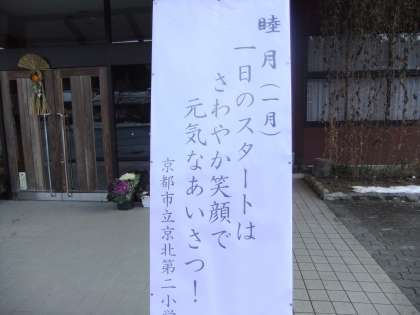 睦月(一月)
一日のスタートは
さわやか笑顔で
元気なあいさつ!
京都市立京北第二小学